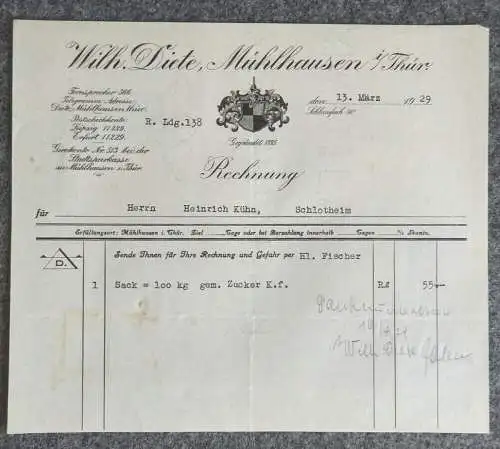 Wilh. Diete, Mühlhausen i/Thür.
Fernsprecher 366
Telegramm-Adresse
Diete, Mühlhausen Thür.
Postscheckkonto:
Leipzig 11229.
Erfurt 11229.
Girokonto Nr. 513 bei der
Stadtsparkasse
in Mühlhausen i. Thür.
R. Ldg.138
den 13. März 1929
Gegründet 1895
Rechnung
für Herrn Heinrich Kühn, Schlotheim
Erfüllungsort: Mühlhausen i. Thür. Ziel Tage oder bei Barzahlung innerhalb Tagen % Skonto.
D.
Sende Ihnen für Ihre Rechnung und Gefahr per Hl. Fischer
1 Sack = 100 kg gem. Zucker K.f. R.M 55.—
Wilh Diete